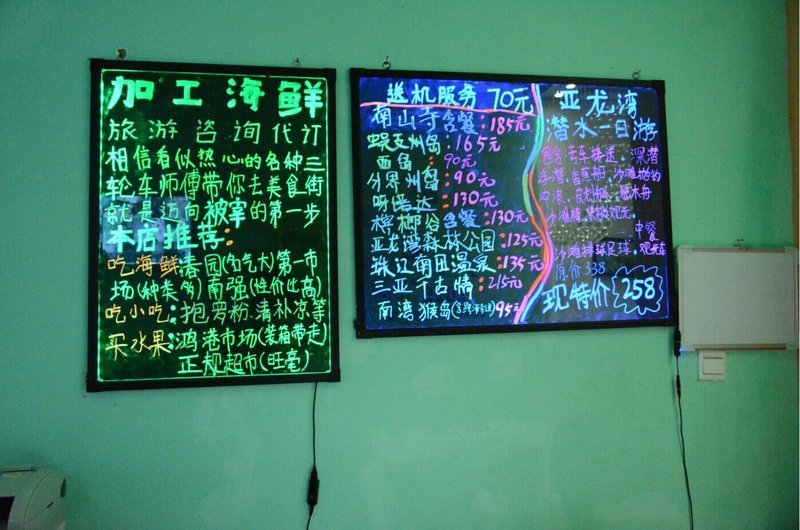 加工海鲜
旅游咨询代订
相信看似热心的各种三
轮车师傅带你去美食街
就是迈向被宰的第一步
本店推荐:
吃海鲜:春园(名气大)第一市
场(种类多)南强(性价比高)
吃小吃:抱罗粉.清补凉等
买水果:鸿港市场(装箱带走)
正规超市(旺毫)
送机服务 70元
南山寺含餐:185元
蜈支州岛:165元
西岛:90元
分界州岛:90元
呀诺达:130元
槟榔谷含餐:130元
亚龙湾森林公园:125元
珠江南田温泉:135元
三亚千古情:215元
南湾猴岛 95元
亚龙湾
潜水一日游
包含去车接送.深潜
香蕉船.沙滩
沙滩椅.
中餐
沙滩排球足球.观光车
原价338
现特价 258